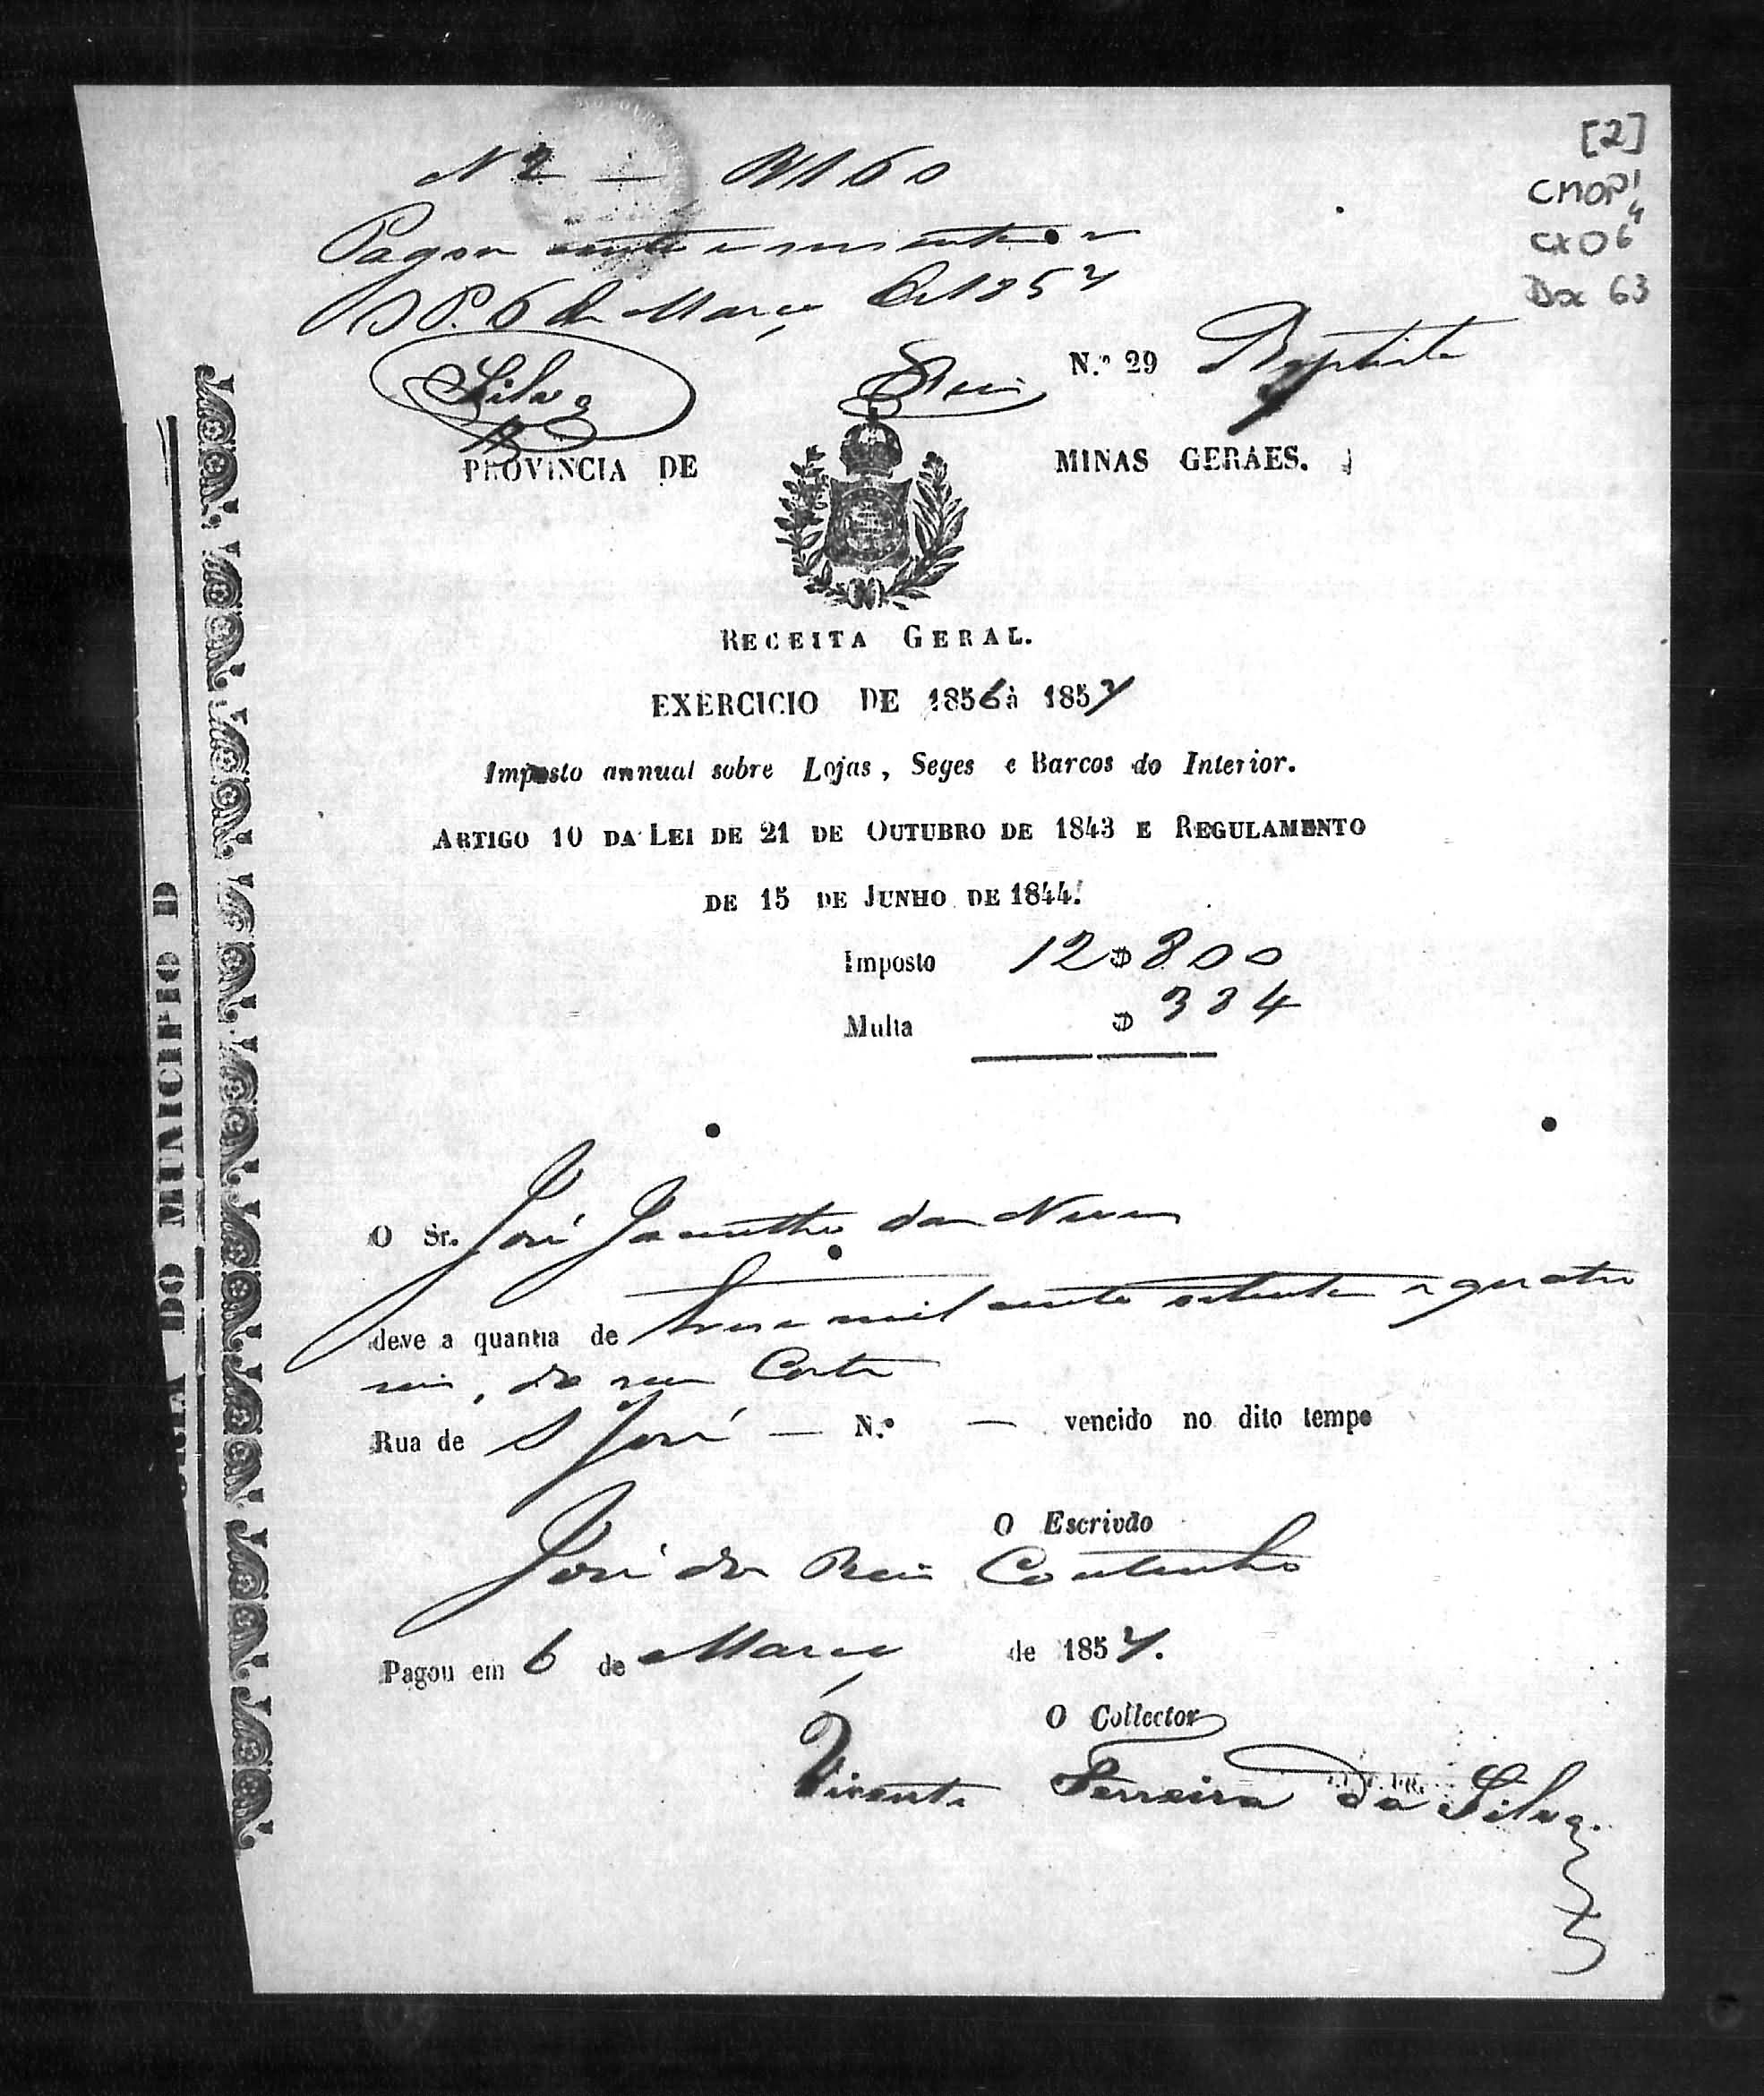 [2]
CMOP
Cx 06
Dox 63
Nº 2 — $160
Pagou cento e sessenta r
O P. 6 de Março de 1857
Silva Reis
N.º 29 Baptista
PROVINCIA DE MINAS GERAES.
RECEITA GERAL.
EXERCICIO DE 1856 à 1857
Imposto annual sobre Lojas, Seges e Barcos do Interior.
ARTIGO 10 DA LEI DE 21 DE OUTUBRO DE 1843 E REGULAMENTO
DE 15 DE JUNHO DE 1844.
Imposto 12$800
Multa $384
O Sr. José Jacintho das Neves
deve a quantia de treze mil cento oitenta e quatro
reis, do seu Corte
Rua de S José — N.º — vencido no dito tempo
O Escrivão
José dos Reis Coutinho
Pagou em 6 de Março de 1857.
O Collector
Vicente Ferreira da Silva.
DO MUNICIPIO D